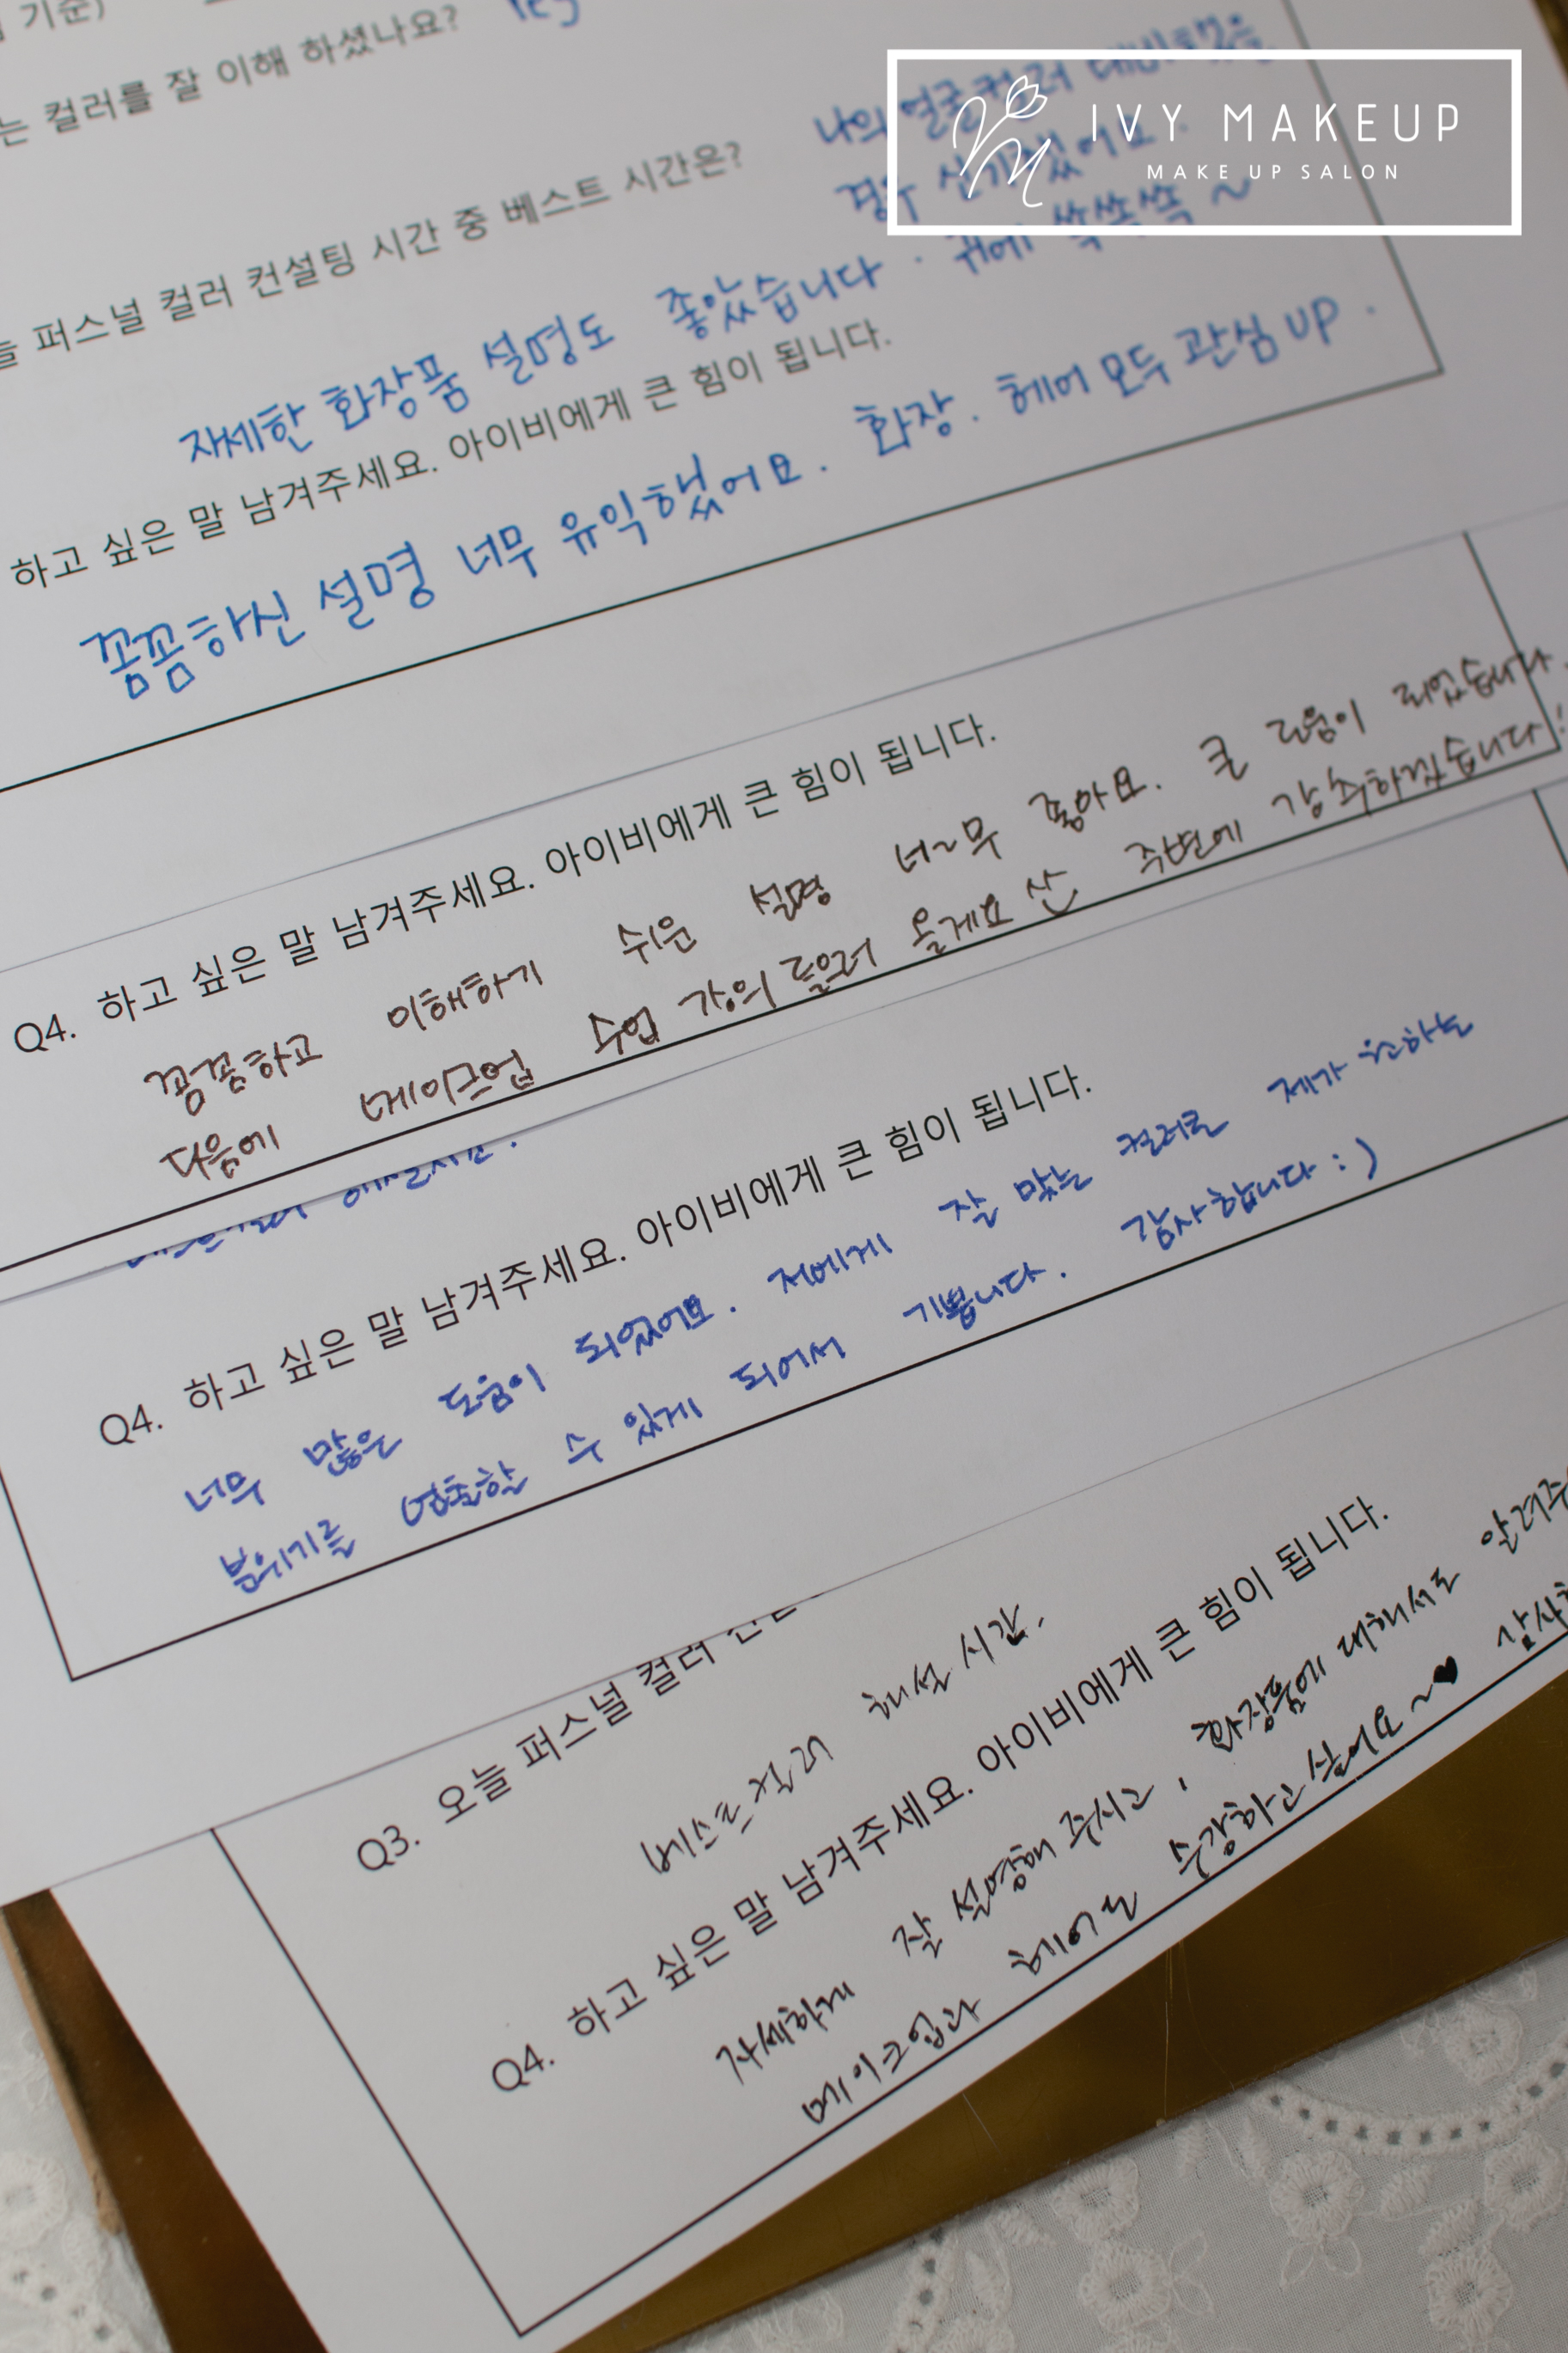 기준)
는 컬러를 잘 이해 하셨나요? Yes
IVY MAKEUP
MAKE UP SALON
나의 얼굴컬러 대비했을
경우 신기했어요.
퍼스널 컬러 컨설팅 시간 중 베스트 시간은?
귀에 쏙쏙쏙 ~
자세한 화장품 설명도 좋았습니다.
하고 싶은 말 남겨주세요. 아이비에게 큰 힘이 됩니다.
꼼꼼하신 설명 너무 유익했어요. 화장. 헤어 모두 관심 UP.
Q4. 하고 싶은 말 남겨주세요. 아이비에게 큰 힘이 됩니다.
꼼꼼하고 이해하기 쉬운 설명 너~무 좋아요. 큰 도움이 되었습니다.
다음에 메이크업 수업 강의 들으러 올게요 주변에 강추하겠습니다!
Q4. 하고 싶은 말 남겨주세요. 아이비에게 큰 힘이 됩니다.
너무 많은 도움이 되었어요. 저에게 잘 맞는 컬러로 제가 원하는
분위기를 연출할 수 있게 되어서 기쁩니다. 감사합니다 :)
Q3. 오늘 퍼스널 컬러
베스트 컬러 해설 시간.
Q4. 하고 싶은 말 남겨주세요. 아이비에게 큰 힘이 됩니다.
자세하게 잘 설명해 주시고, 화장품에 대해서도 알려주
메이크업과 헤어도 수강하고 싶어요~♥ 감사